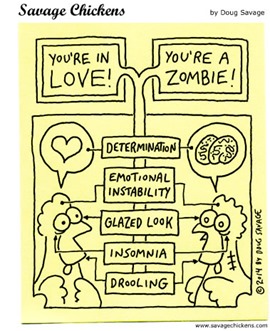 Savage Chickens
by Doug Savage
YOU'RE IN
LOVE!
YOU'RE A
ZOMBIE!
DETERMINATION
EMOTIONAL
INSTABILITY
GLAZED LOOK
INSOMNIA
DROOLING
©2014 BY DOUG SAVAGE
www.savagechickens.com